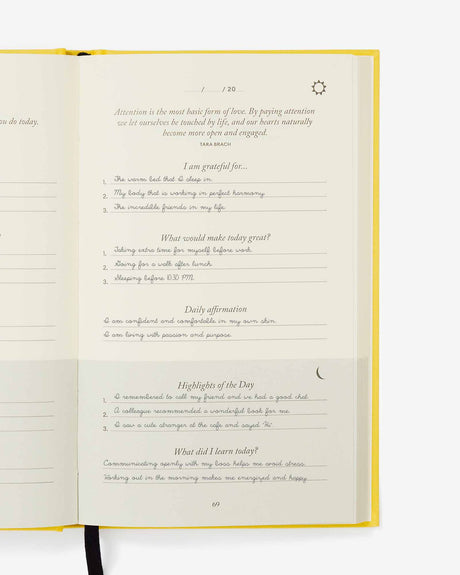 ou do today.
/ / 20
Attention is the most basic form of love. By paying attention
we let ourselves be touched by life, and our hearts naturally
become more open and engaged.
TARA BRACH
I am grateful for...
1. The warm bed that I sleep in.
2. My body that is working in perfect harmony.
3. The incredible friends in my life.
What would make today great?
1. Taking extra time for myself before work.
2. Going for a walk after lunch.
3. Sleeping before 10:30 PM.
Daily affirmation
I am confident and comfortable in my own skin.
I am living with passion and purpose.
Highlights of the Day
1. I remembered to call my friend and we had a good chat.
2. A colleague recommended a wonderful book for me.
3. I saw a cute stranger at the cafe and sayed 'Hi'.
What did I learn today?
Communicating openly with my boss helps me avoid stress.
Working out in the morning makes me energized and happy.
69